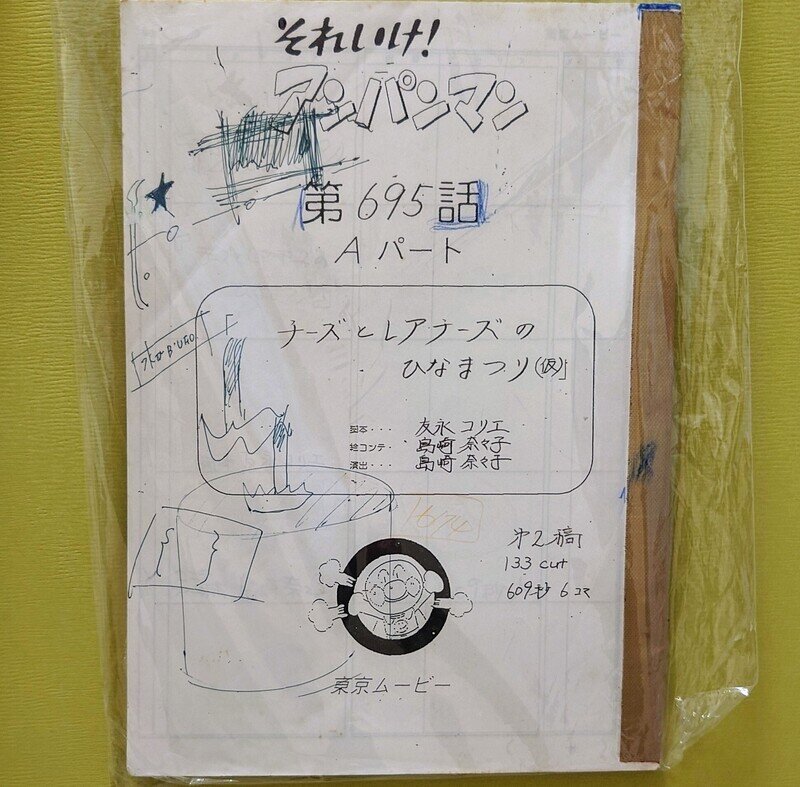 それいけ!
アンパンマン
第695話
Aパート
チーズとレアチーズの
ひなまつり(仮)
脚本・・・ 友永コリエ
絵コンテ・ 島崎奈々子
演出・・・ 島崎奈々子
第2稿
133 cut
609秒6コマ
東京ムービー